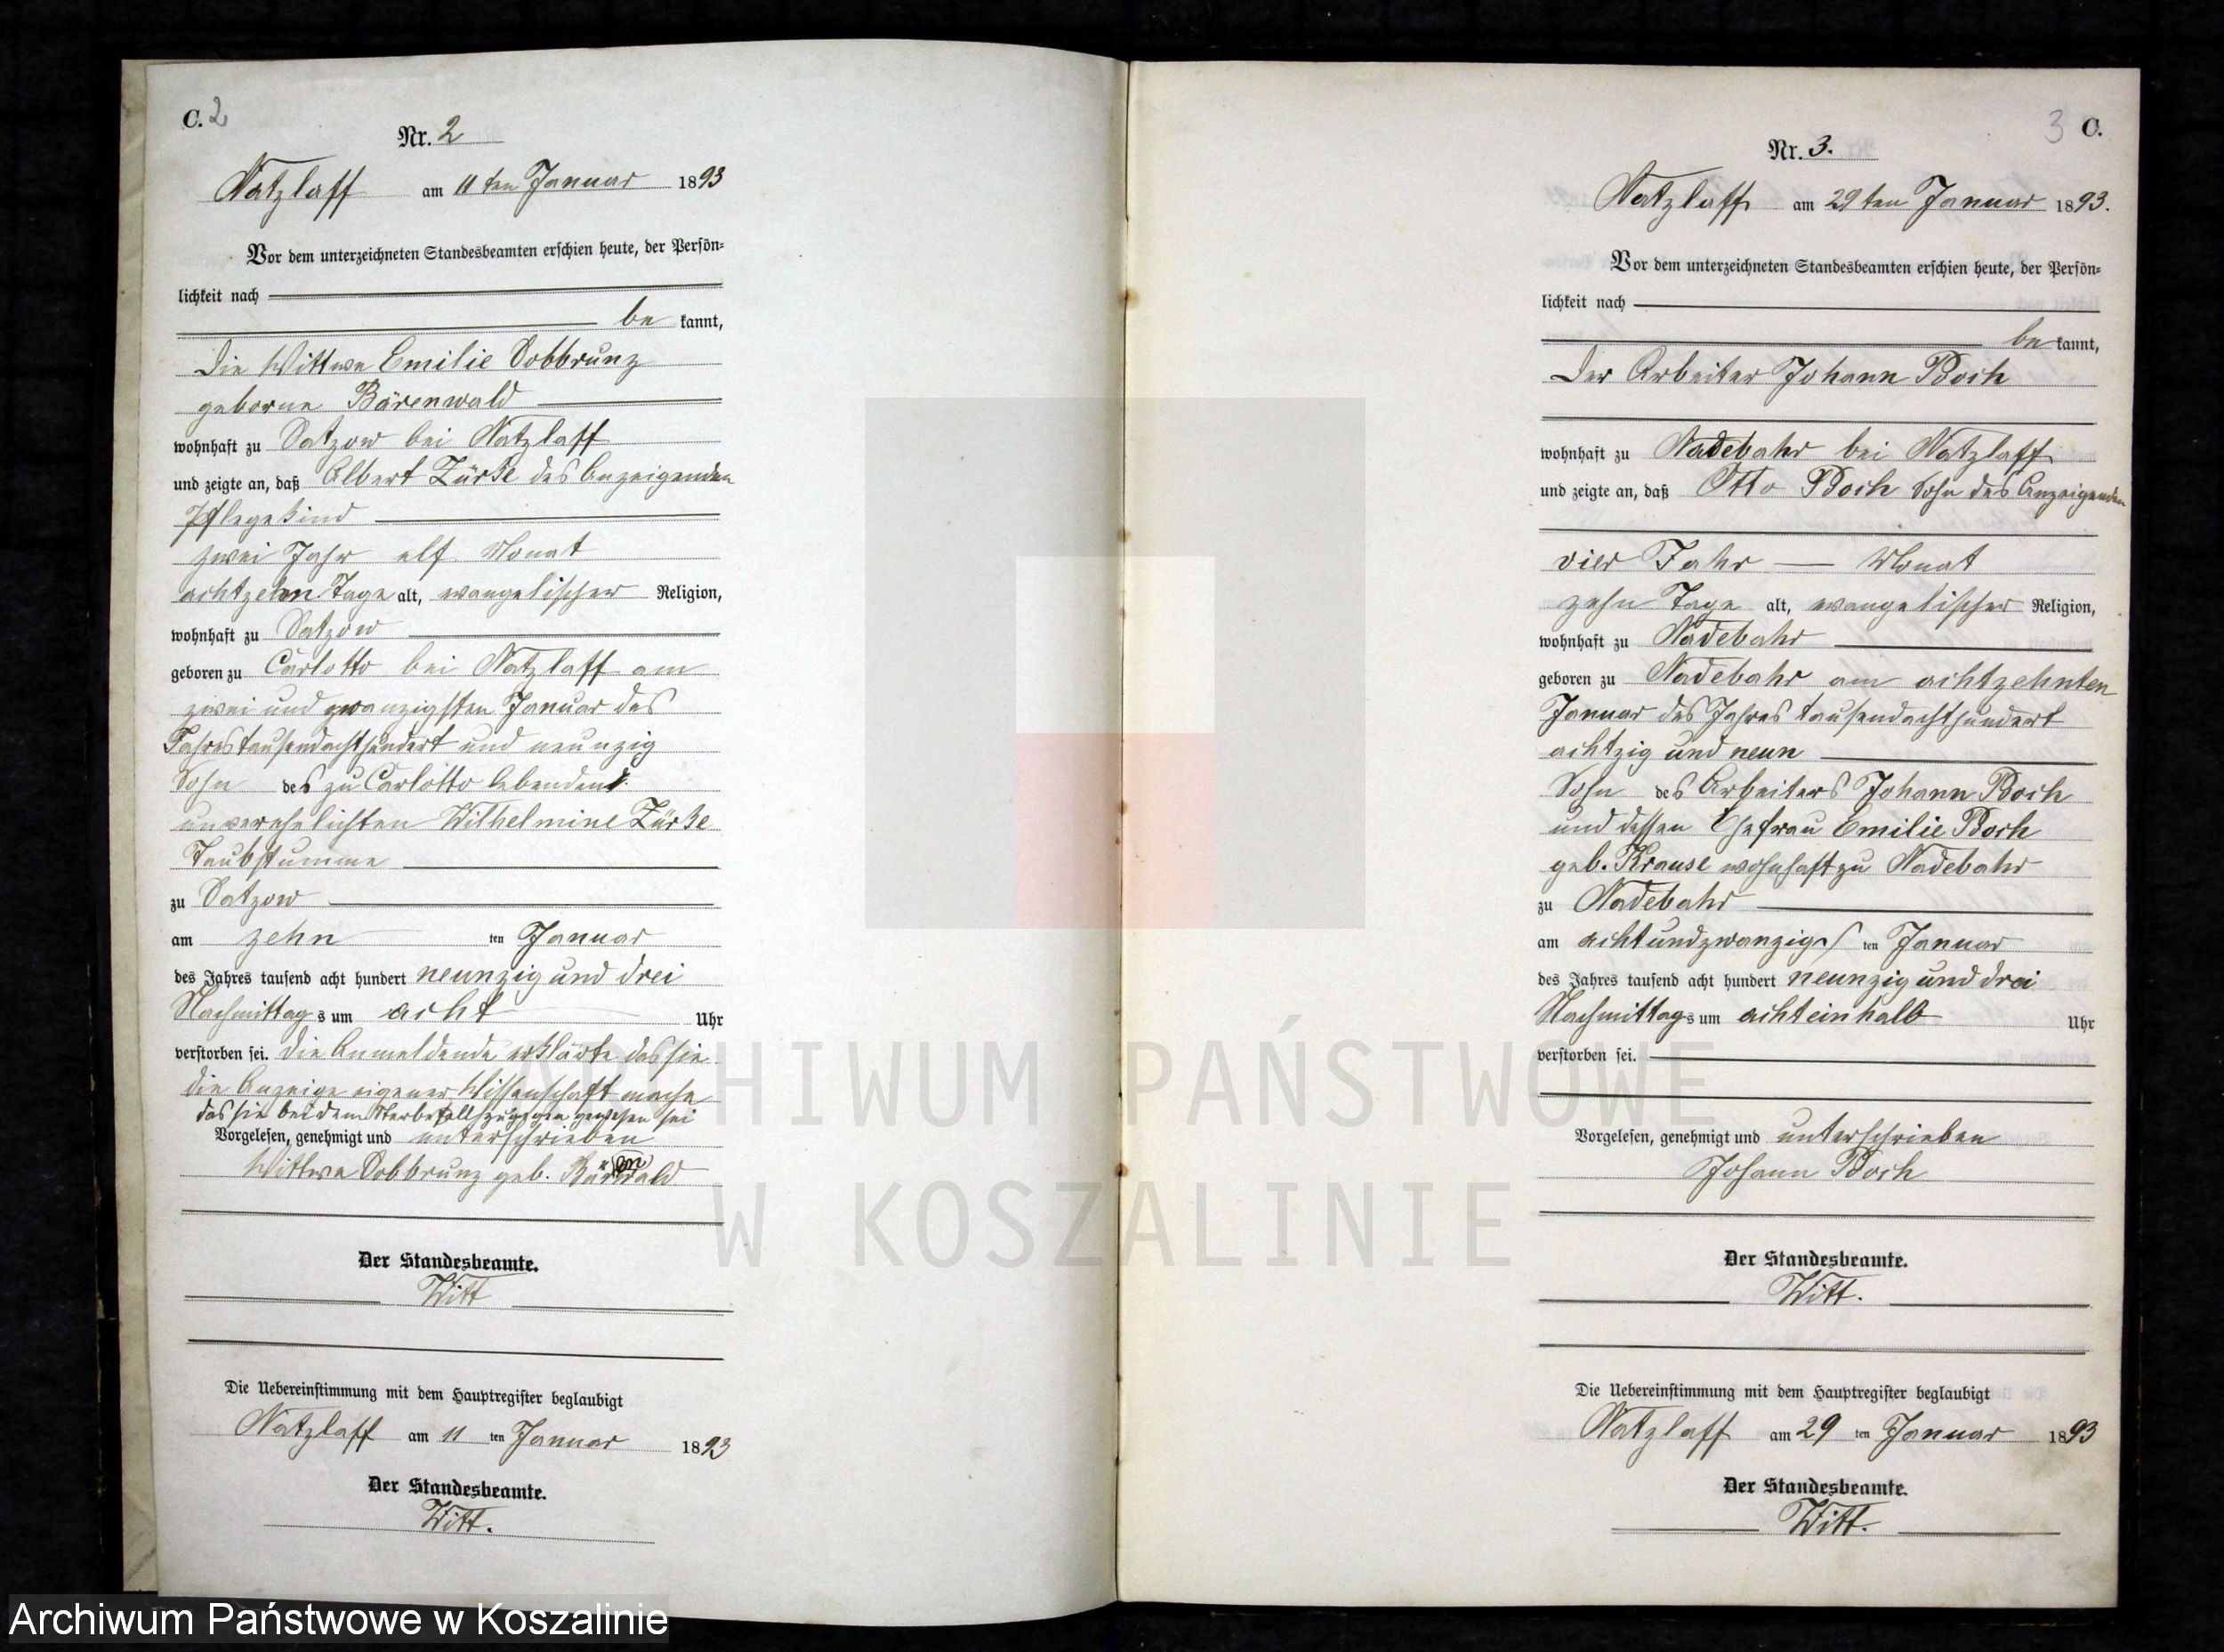 C. 2
Nr. 2
Natzlaff am 11ten Januar 1893
Vor dem unterzeichneten Standesbeamten erschien heute, der Persön-
lichkeit nach
be kannt,
die Wittwe Emilie Dobbrunz
geborne Bärenwald
wohnhaft zu Satzow bei Natzlaff
und zeigte an, daß Albert Zürke des Anzeigenden
Pflegekind
zwei Jahr elf Monat
achtzehn Tage alt, evangelischer Religion,
wohnhaft zu Satzow
geboren zu Carlotto bei Natzlaff am
zwei und zwanzigsten Januar des
Jahres tausendachthundert und neunzig
Sohn des zu Carlotto lebenden
unverehelichten Wilhelmine Zürke
Taubstumme
zu Satzow
am zehn ten Januar
des Jahres tausend acht hundert neunzig und drei
Nachmittags um acht Uhr
verstorben sei. Die Anmeldende erklärte das sie
die Anzeige eigener Wissenschaft mache
das sie bei dem Sterbefall zugegen gewesen sei
Vorgelesen, genehmigt und unterschrieben
Wittwe Dobbrunz geb. Bärenwald
Der Standesbeamte.
Witt
Die Uebereinstimmung mit dem Hauptregister beglaubigt
Natzlaff am 11 ten Januar 1893
Der Standesbeamte.
Witt.
3 C.
Nr. 3.
Natzlaff am 29ten Januar 1893.
Vor dem unterzeichneten Standesbeamten erschien heute, der Persön-
lichkeit nach
be kannt,
der Arbeiter Johann Boch
wohnhaft zu Nadebahr bei Natzlaff
und zeigte an, daß Otto Boch Sohn des Anzeigenden
vier Jahr — Monat
zehn Tage alt, evangelischer Religion,
wohnhaft zu Nadebahr
geboren zu Nadebahr am achtzehnten
Januar des Jahres tausendachthundert
achtzig und neun
Sohn des Arbeiters Johann Boch
und dessen Ehefrau Emilie Boch
geb. Krause wohnhaft zu Nadebahr
zu Nadebahr
am achtundzwanzigs ten Januar
des Jahres tausend acht hundert neunzig und drei
Nachmittags um achteinhalb Uhr
verstorben sei.
Vorgelesen, genehmigt und unterschrieben
Johann Boch
Der Standesbeamte.
Witt.
Die Uebereinstimmung mit dem Hauptregister beglaubigt
Natzlaff am 29 ten Januar 1893
Der Standesbeamte.
Witt.
ARCHIWUM PAŃSTWOWE
W KOSZALINIE
Archiwum Państwowe w Koszalinie